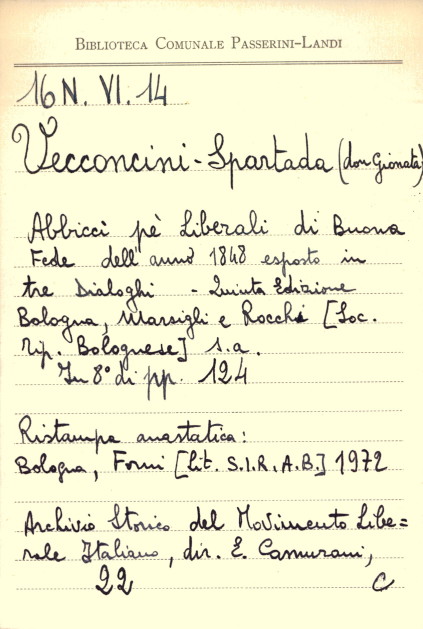 BIBLIOTECA COMUNALE PASSERINI-LANDI
16 N. VI. 14
Vecconcini - Spartada (don Gionata)
Abbicci pè Liberali di Buona
Fede dell'anno 1848 esposto in
tre Dialoghi - Quinta Edizione
Bologna, Marsigli e Rocchi [Soc.
Tip. Bolognese] s.a.
In 8° di pp. 124
Ristampa anastatica:
Bologna, Forni [lit. S.I.R.A.B.] 1972
Archivio Storico del Movimento Libe=
rale Italiano, dir. E. Camurani,
22 C